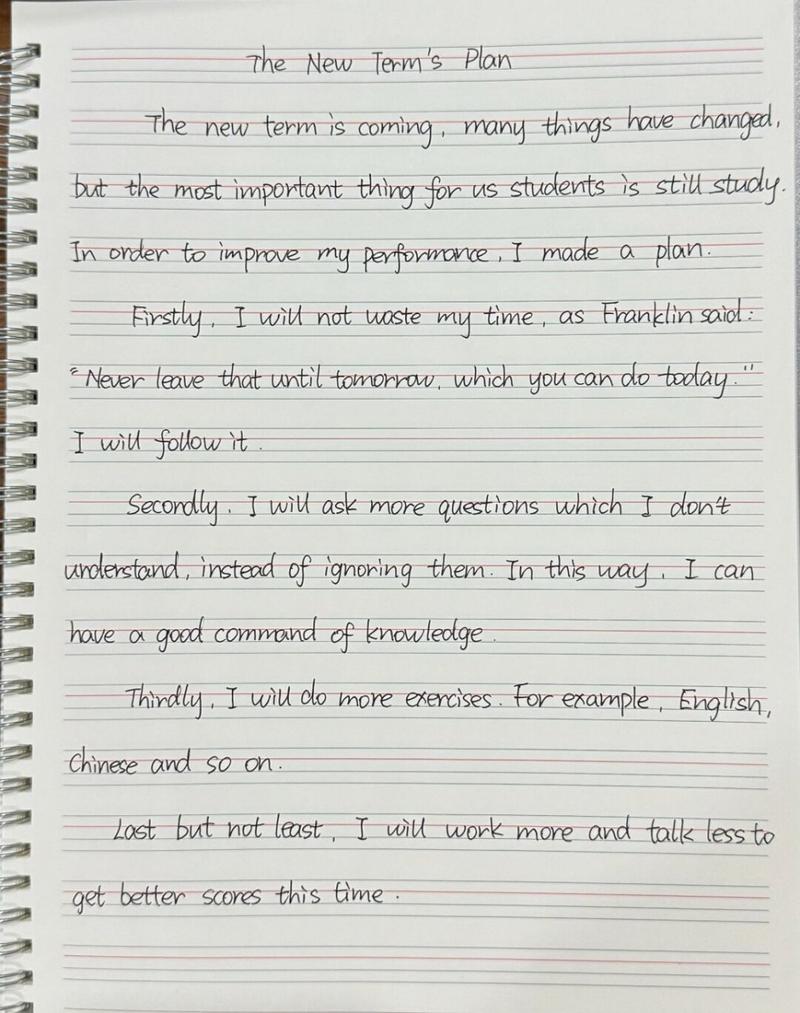 The New Term's Plan
The new term is coming, many things have changed,
but the most important thing for us students is still study.
In order to improve my performance, I made a plan.
Firstly, I will not waste my time, as Franklin said:
"Never leave that until tomorrow, which you can do today."
I will follow it.
Secondly, I will ask more questions which I don't
understand, instead of ignoring them. In this way, I can
have a good command of knowledge.
Thirdly, I will do more exercises. For example, English,
Chinese and so on.
Last but not least, I will work more and talk less to
get better scores this time.